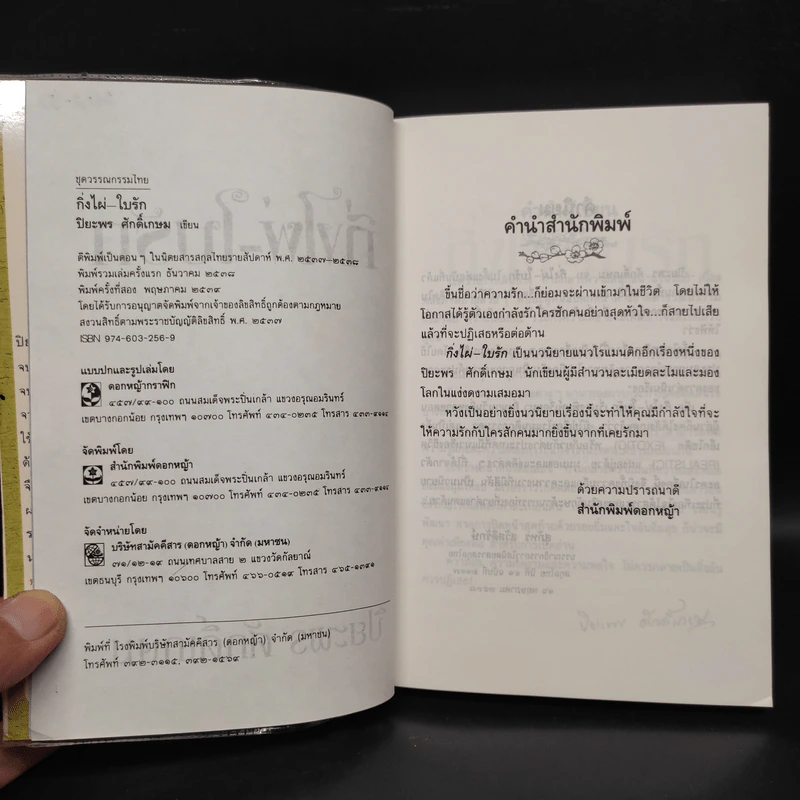 ชุดวรรณกรรมไทย
กิ่งไผ่–ใบรัก
ปิยะพร ศักดิ์เกษม เขียน
ตีพิมพ์เป็นตอนๆ ในนิตยสารสกุลไทยรายสัปดาห์ พ.ศ. ๒๕๓๗–๒๕๓๘
พิมพ์รวมเล่มครั้งแรก ธันวาคม ๒๕๓๘
พิมพ์ครั้งที่สอง พฤษภาคม ๒๕๓๙
โดยได้รับการอนุญาตจัดพิมพ์จากเจ้าของลิขสิทธิ์ถูกต้องตามกฎหมาย
สงวนลิขสิทธิ์ตามพระราชบัญญัติลิขสิทธิ์ พ.ศ. ๒๕๓๗
ISBN 974-603-256-9
แบบปกและรูปเล่มโดย
ดอกหญ้ากราฟิก
๔๕๗/๙๙-๑๐๐ ถนนสมเด็จพระปิ่นเกล้า แขวงอรุณอมรินทร์
เขตบางกอกน้อย กรุงเทพฯ ๑๐๗๐๐ โทรศัพท์ ๔๓๔-๐๒๓๕ โทรสาร
จัดพิมพ์โดย
สำนักพิมพ์ดอกหญ้า
๔๕๗/๙๙-๑๐๐ ถนนสมเด็จพระปิ่นเกล้า แขวงอรุณอมรินทร์
เขตบางกอกน้อย กรุงเทพฯ ๑๐๗๐๐ โทรศัพท์ ๔๓๔-๐๒๓๕ โทรสาร
จัดจำหน่ายโดย
บริษัทสามัคคีสาร (ดอกหญ้า) จำกัด (มหาชน)
๗๑/๑๒-๑๙ ถนนเทศบาลสาย ๒ แขวงวัดกัลยาณ์
เขตธนบุรี กรุงเทพฯ ๑๐๖๐๐ โทรศัพท์ ๔๖๖-๐๕๑๙ โทรสาร ๔๖๕-๑๓๙๑
พิมพ์ที่ โรงพิมพ์บริษัทสามัคคีสาร (ดอกหญ้า) จำกัด (มหาชน)
โทรศัพท์ ๓๙๒-๓๑๑๕, ๓๙๒-๑๕๖๙
คำนำสำนักพิมพ์
ขึ้นชื่อว่าความรัก...ก็ย่อมจะผ่านเข้ามาในชีวิต โดยไม่ให้
โอกาสได้รู้ตัวเองกำลังรักใครซักคนอย่างสุดหัวใจ...ก็สายไปเสีย
แล้วที่จะปฏิเสธหรือต่อต้าน
กิ่งไผ่–ใบรัก เป็นนวนิยายแนวโรแมนติกอีกเรื่องหนึ่งของ
ปิยะพร ศักดิ์เกษม นักเขียนผู้มีสำนวนละเมียดละไมและมอง
โลกในแง่งดงามเสมอมา
หวังเป็นอย่างยิ่งนวนิยายเรื่องนี้จะทำให้คุณมีกำลังใจที่จะ
ให้ความรักกับใครสักคนมากยิ่งขึ้นจากที่เคยรักมา
ด้วยความปรารถนาดี
สำนักพิมพ์ดอกหญ้า